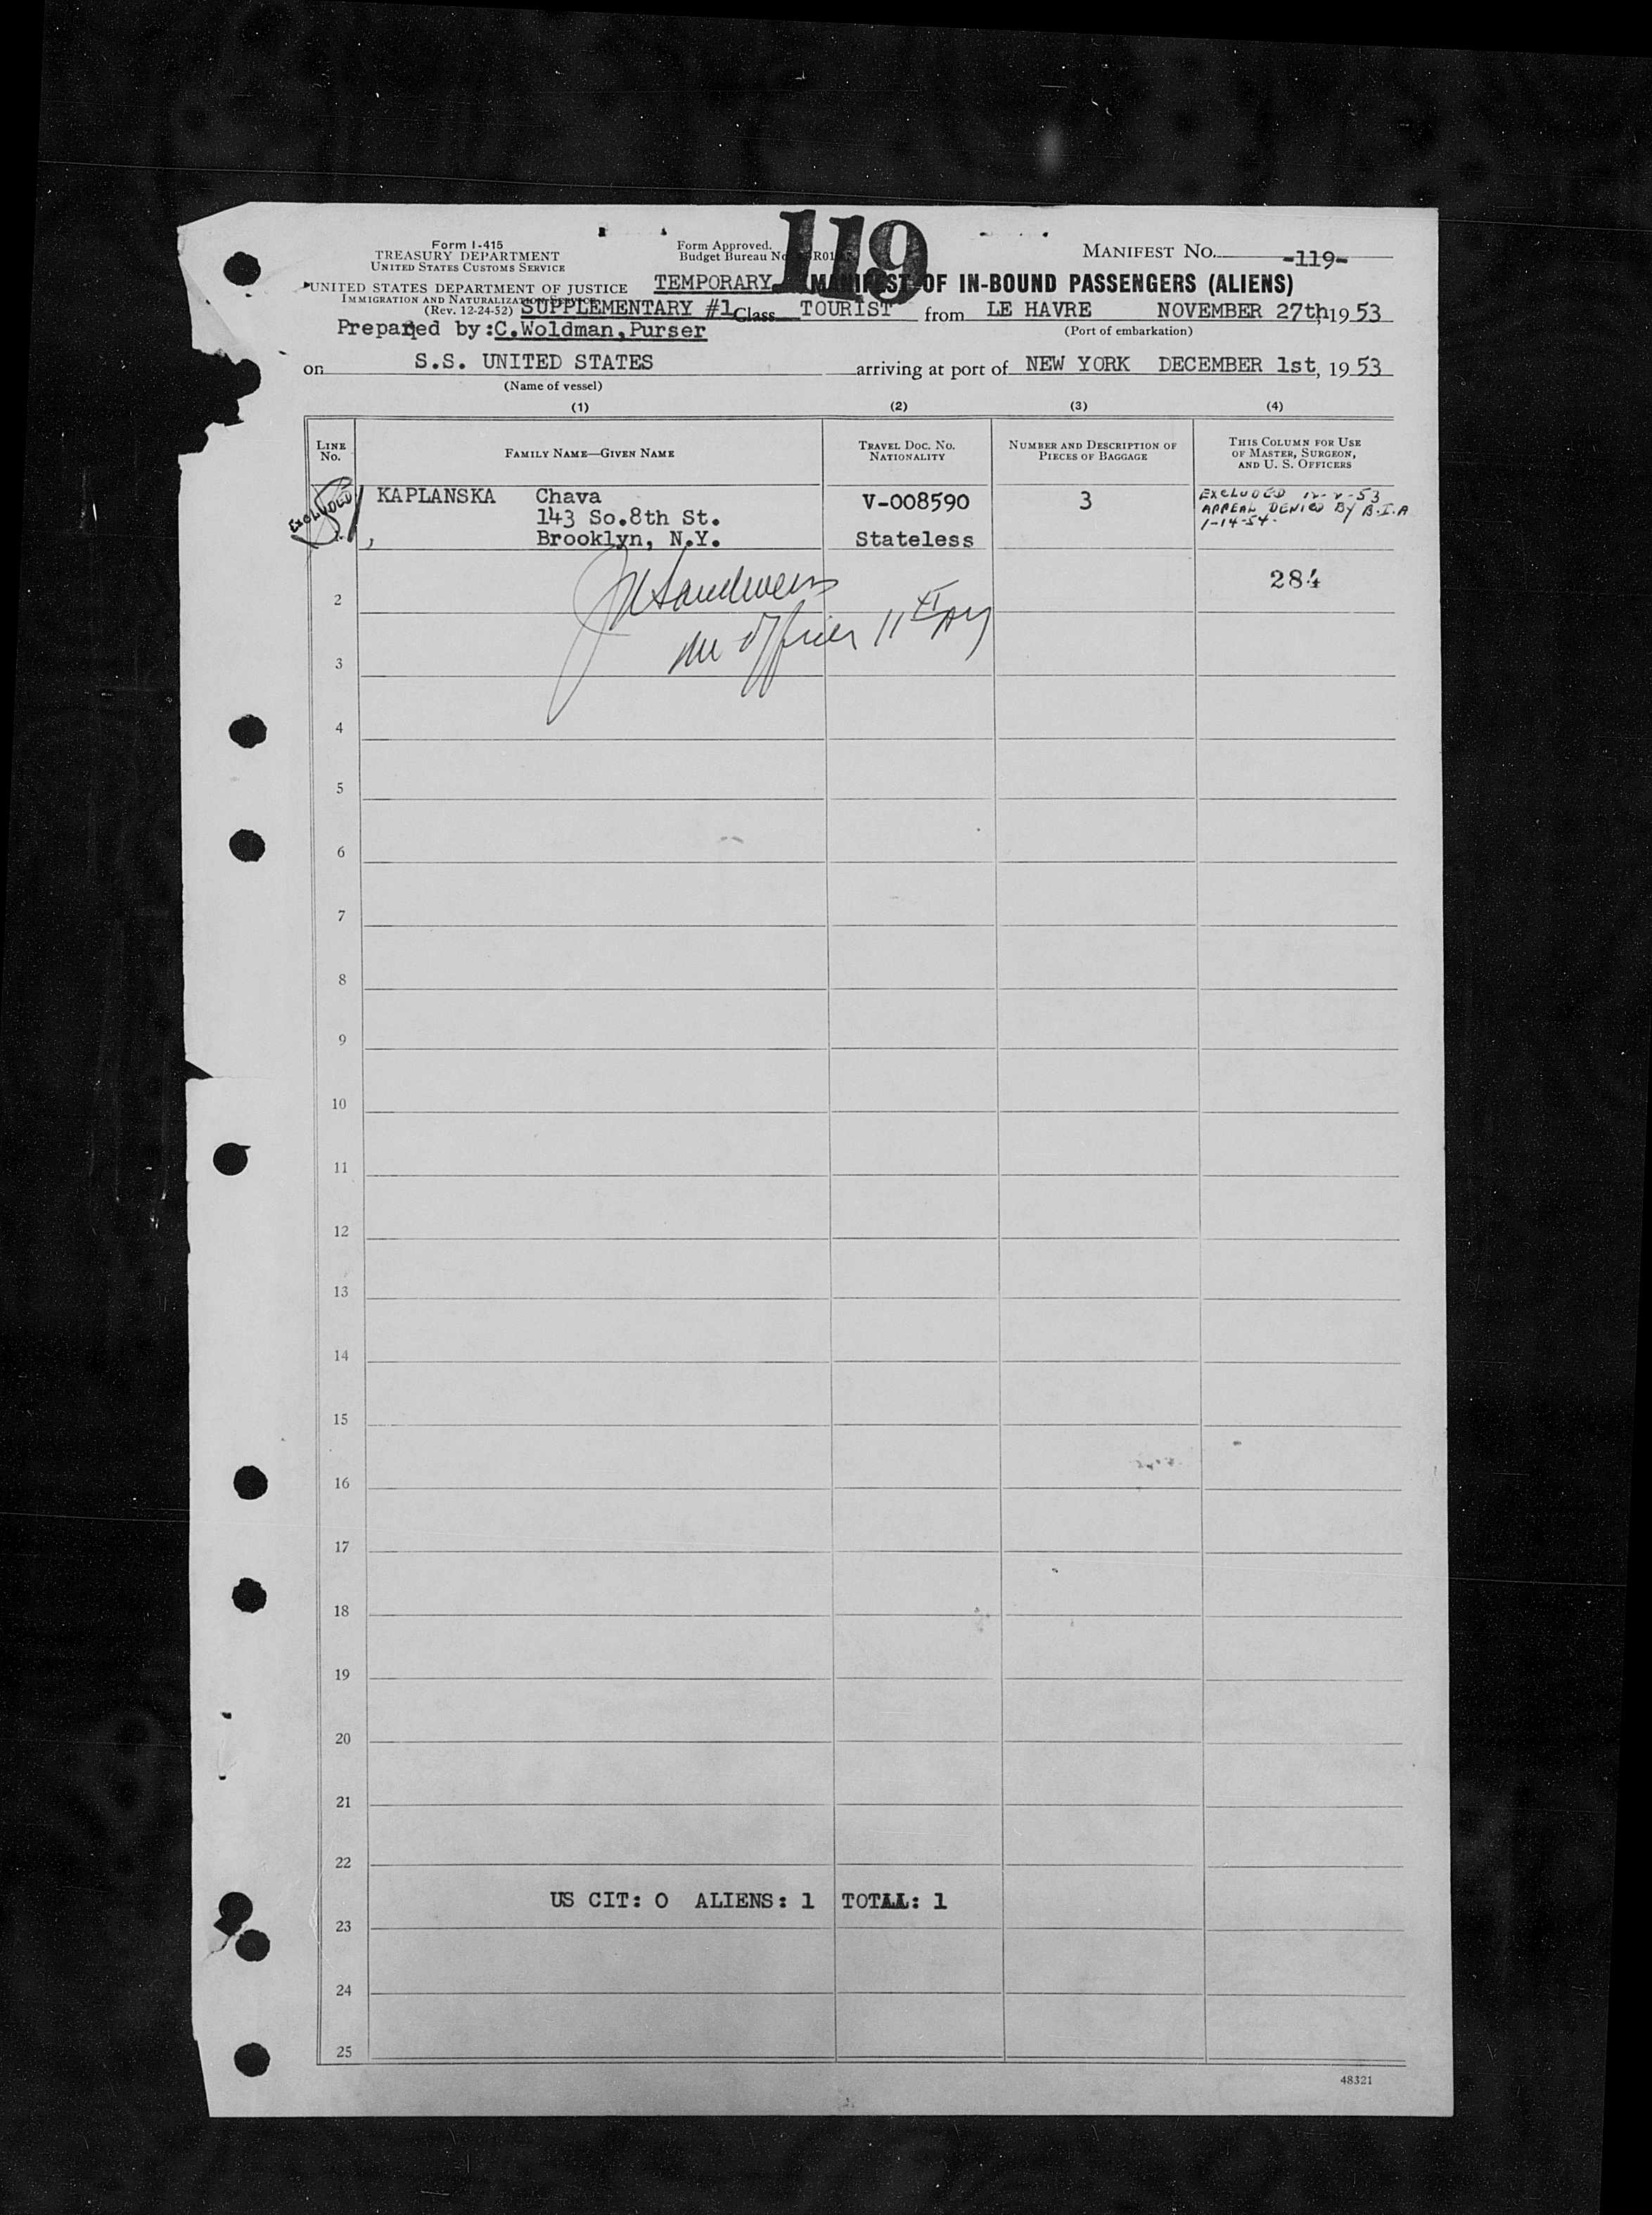 119
Form I-415
TREASURY DEPARTMENT
UNITED STATES CUSTOMS SERVICE
Form Approved.
Budget Bureau No.
MANIFEST No. -119-
UNITED STATES DEPARTMENT OF JUSTICE
IMMIGRATION AND NATURALIZATION SERVICE
(Rev. 12-24-52)
TEMPORARY MANIFEST OF IN-BOUND PASSENGERS (ALIENS)
SUPPLEMENTARY #1 Class TOURIST from LE HAVRE NOVEMBER 27th, 1953
(Port of embarkation)
Prepared by:C.Woldman,Purser
on S.S. UNITED STATES arriving at port of NEW YORK DECEMBER 1st, 1953
(Name of vessel)
(1) (2) (3) (4)
LINE No.
FAMILY NAME—GIVEN NAME
TRAVEL DOC. NO. NATIONALITY
NUMBER AND DESCRIPTION OF PIECES OF BAGGAGE
THIS COLUMN FOR USE OF MASTER, SURGEON, AND U. S. OFFICERS
EXCLUDED
1 KAPLANSKA Chava V-008590 3
143 So.8th St.
Brooklyn, N.Y. Stateless
EXCLUDED
APPEAL DENIED By B.I.A
1-14-54.
284
2
3
4
5
6
7
8
9
10
11
12
13
14
15
16
17
18
19
20
21
22
US CIT: 0 ALIENS: 1 TOTAL: 1
23
24
25
48321